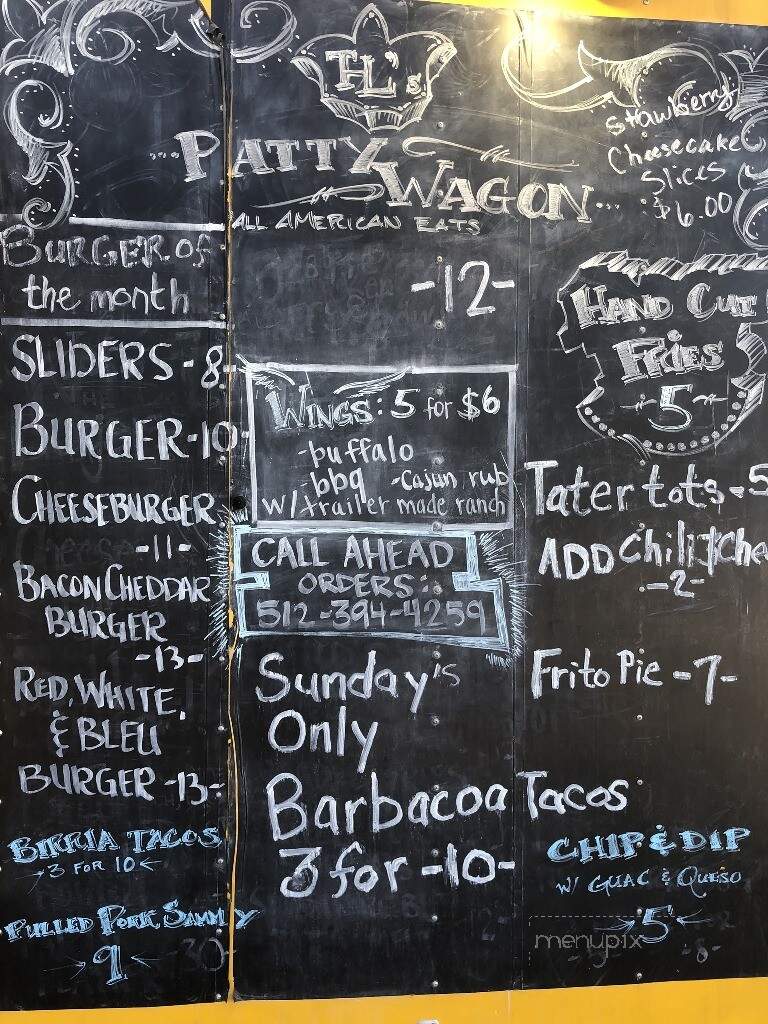 TL's
...PATTY
WAGON...
ALL AMERICAN EATS
Strawberry
Cheesecake
Slices
$6.00
BURGER OF
the month
-12-
SLIDERS-8-
BURGER-10-
CHEESEBURGER
-11-
BACON CHEDDAR
BURGER
-13-
RED, WHITE,
& BLEU
BURGER-13-
BIRRIA TACOS
3 FOR 10
PULLED PORK SAMMY
9
WINGS: 5 for $6
-buffalo
-bbq -Cajun rub
w/trailer made ranch
CALL AHEAD
ORDERS:
512-394-4259
Sunday's
Only
Barbacoa Tacos
3 for -10-
HAND CUT
FRIES
-5-
Tater tots-5
ADD Chili &
-2-
Frito Pie -7-
CHIP & DIP
W/ GUAC & QUESO
5
menupix